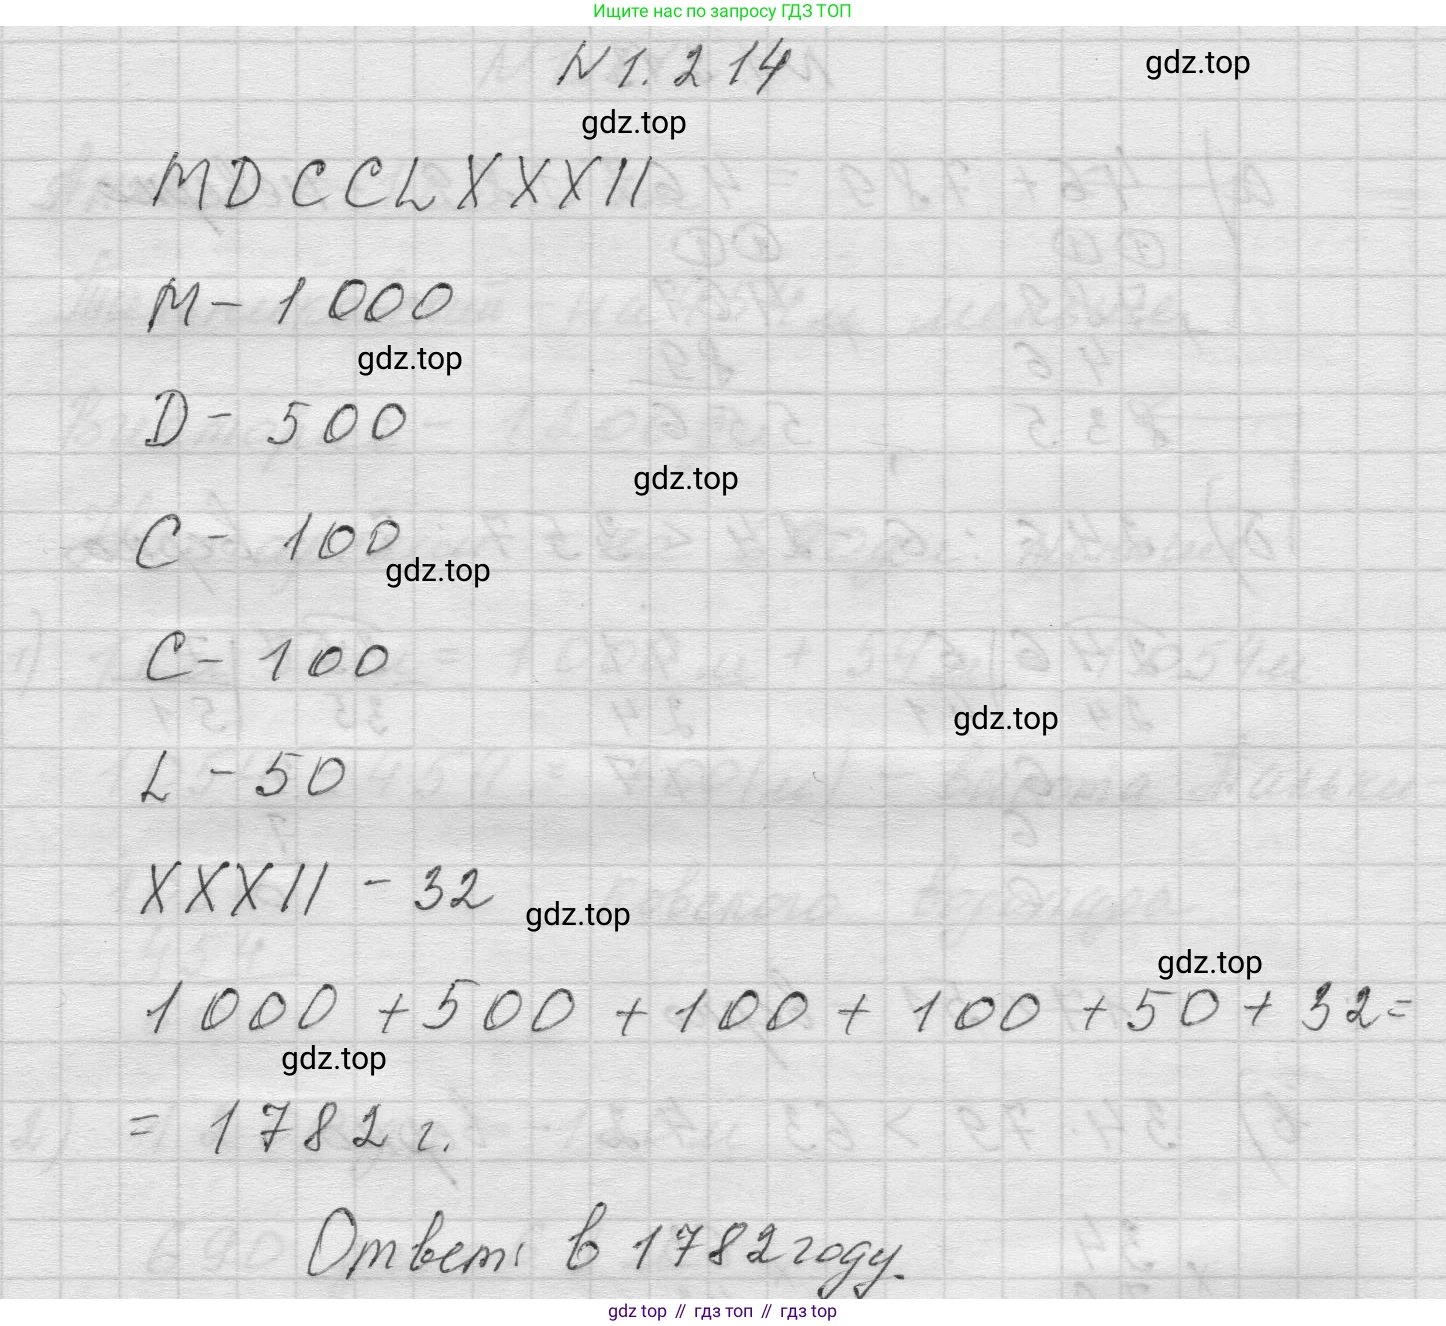 Ищите нас по запросу ГДЗ ТОП
N 1.214
gdz.top
gdz.top
MDCCLXXXII
M - 1000
gdz.top
D - 500
gdz.top
C - 100
gdz.top
C - 100
gdz.top
L - 50
XXXII - 32
gdz.top
gdz.top
1000 + 500 + 100 + 100 + 50 + 32 =
gdz.top
= 1782 г.
Ответ: в 1782 году.
gdz top // гдз топ // гдз top